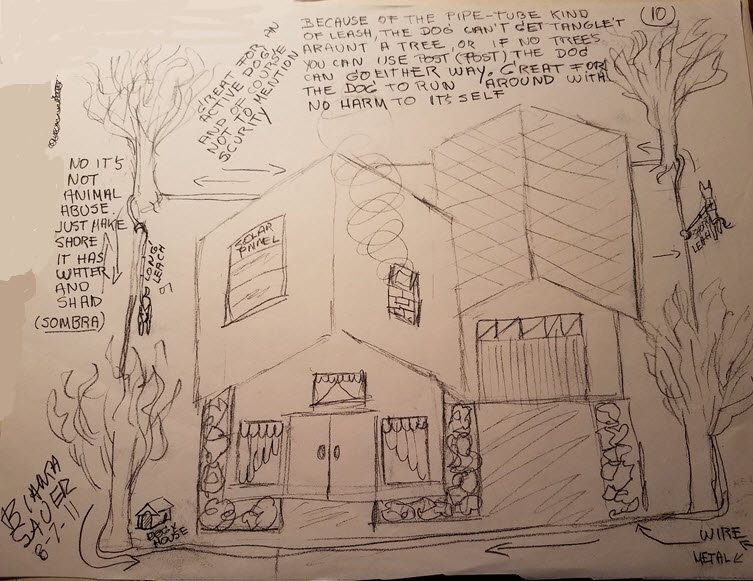 BECAUSE OF THE PIPE-TUBE KIND
OF LEASH, THE DOG CAN'T GET TANGLE'T
ARAUNT A TREE, OR IF NO TREES
YOU CAN USE POST (POST) THE DOG
CAN GO EITHER WAY. GREAT FOR
THE DOG TO RUN AROUND WITH
NO HARM TO IT'S SELF
10
GREAT FOR AN
ACTIVE DOG!
AND OF COURSE
NOT TO MENTION
SCURITY
NO IT'S
NOT
ANIMAL
ABUSE.
JUST MAKE
SHORE
IT HAS
WATER
AND
SHAD
(SOMBRA)
LONG
LEACH
SOLAR
PNNEL
SHORT
LEACH
DOG
HOUSE
SAUER
8-7-11
WIRE
METAL